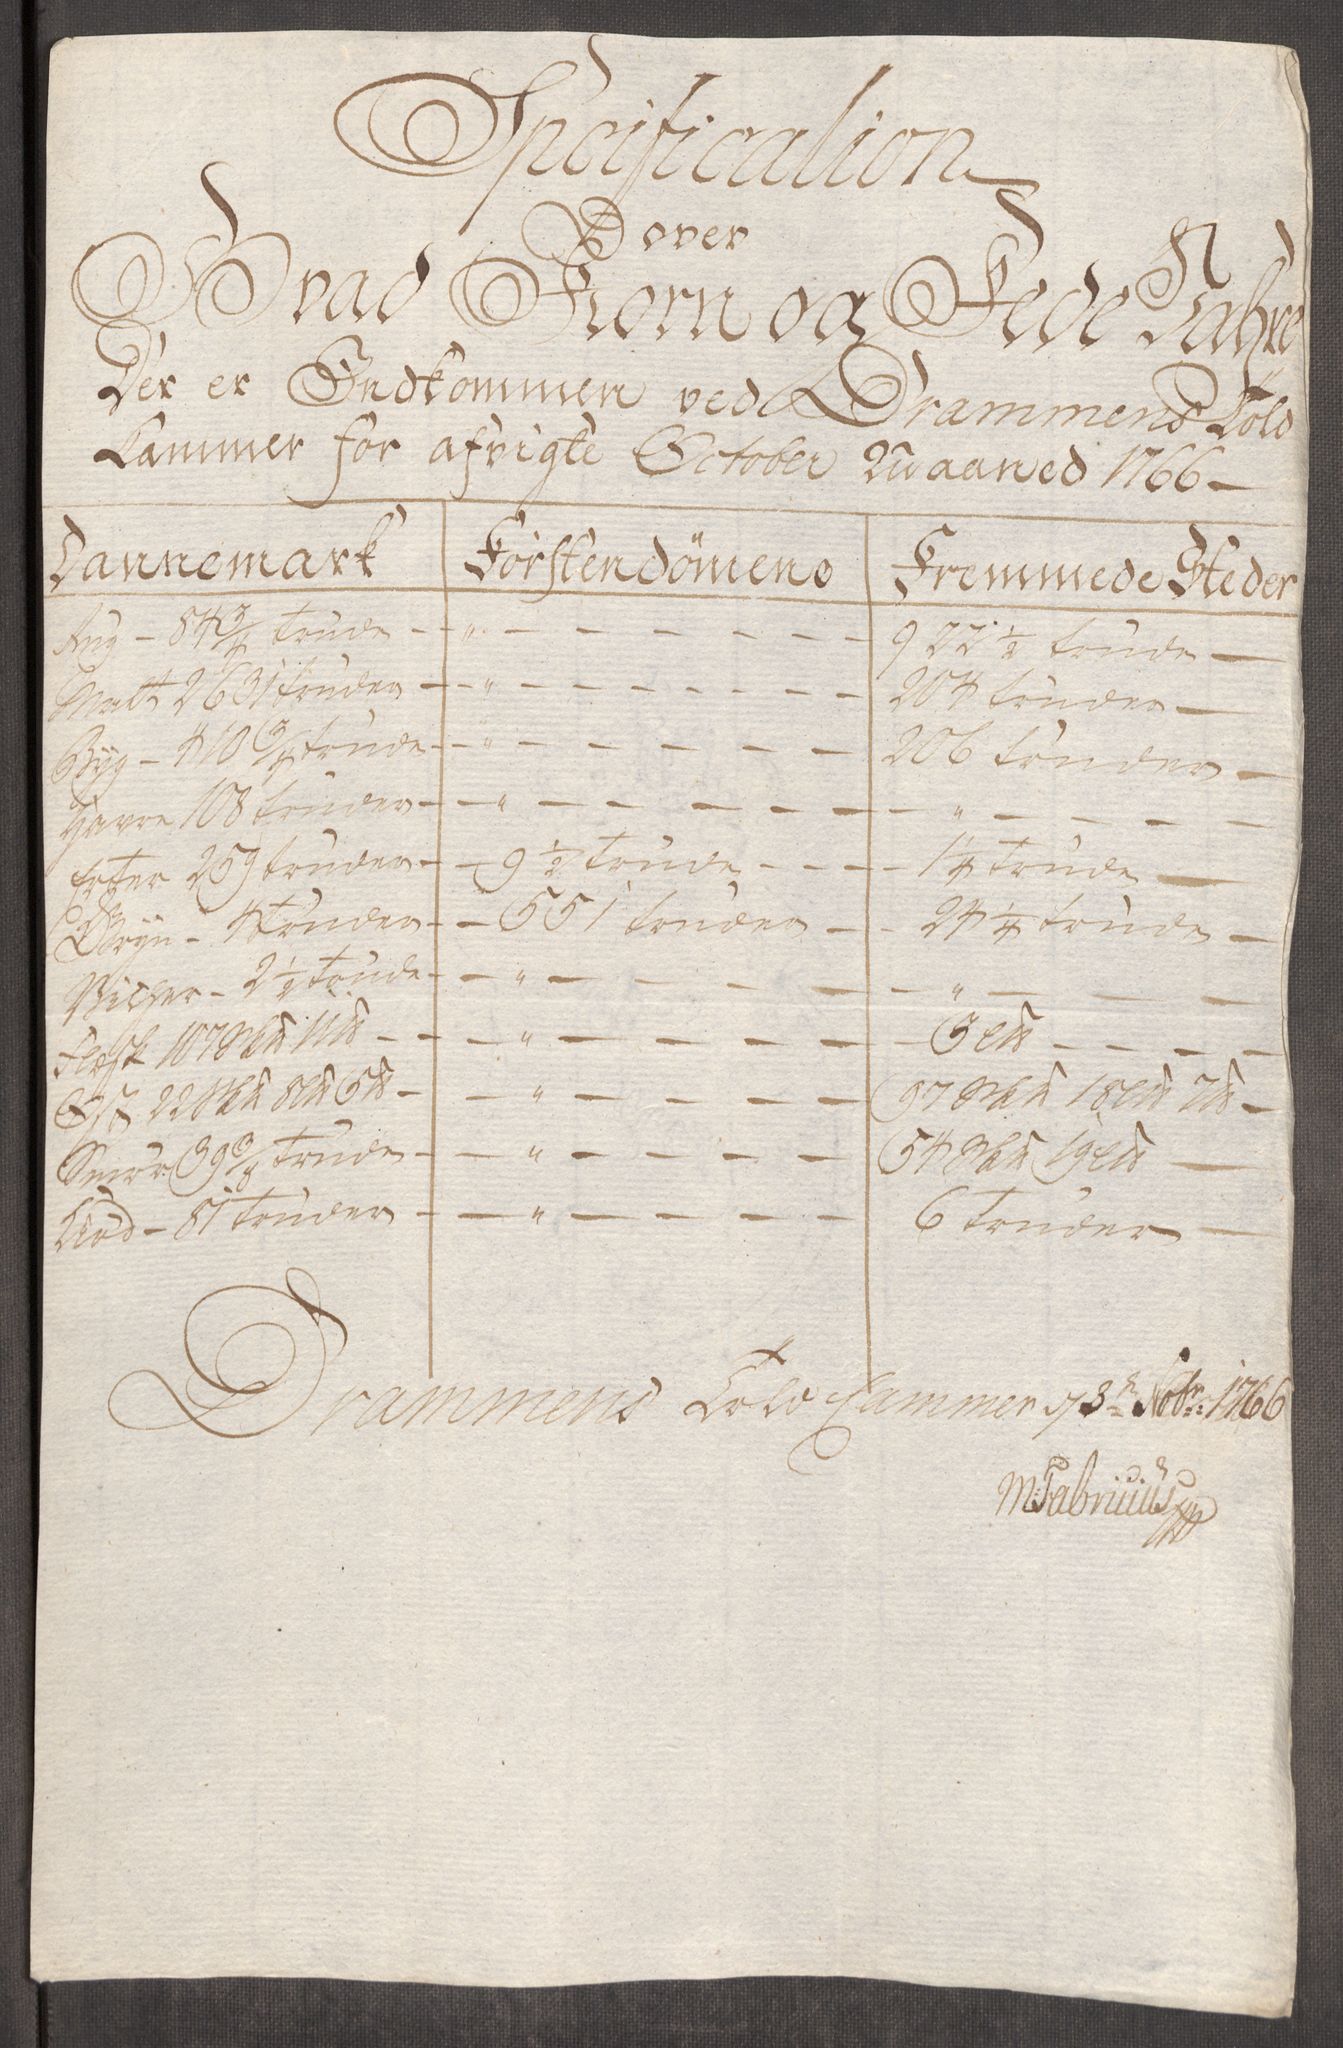 Specification
over
Hvad Korn og Fede Vahre
Der er Indkommen ved Drammens Told
Cammer for afvigte October Maaned 1766
Dannemark Förstendömene Fremmede Steder
Rug - 54 3/4 tønde - " - 922 1/2 tønde
Malt 2631 tønder - " - 204 tønder
Byg - 410 3/4 tønde - " - 206 tønder
Havre 108 tønder - " - "
Erter 259 tønder - 9 1/2 tønde - 1 1/4 tønde
Gryn - 4 tønder - 551 tønder - 24 1/4 tønde
Vicher - 2 1/2 tønde - " - "
Flesk 107 Sk℔ 11 ℔ - " - 3 L℔
Ost 22 Sk℔ 8 L℔ 5 ℔ - " - 97 Sk℔ 18 L℔ 7 ℔
Smør 39 3/8 tønde - " - 54 Sk℔ 19 L℔
Kiød - 81 tønder - " - 6 tønder
Drammens Told Cammer d 3n Nobr: 1766
M Fabritius